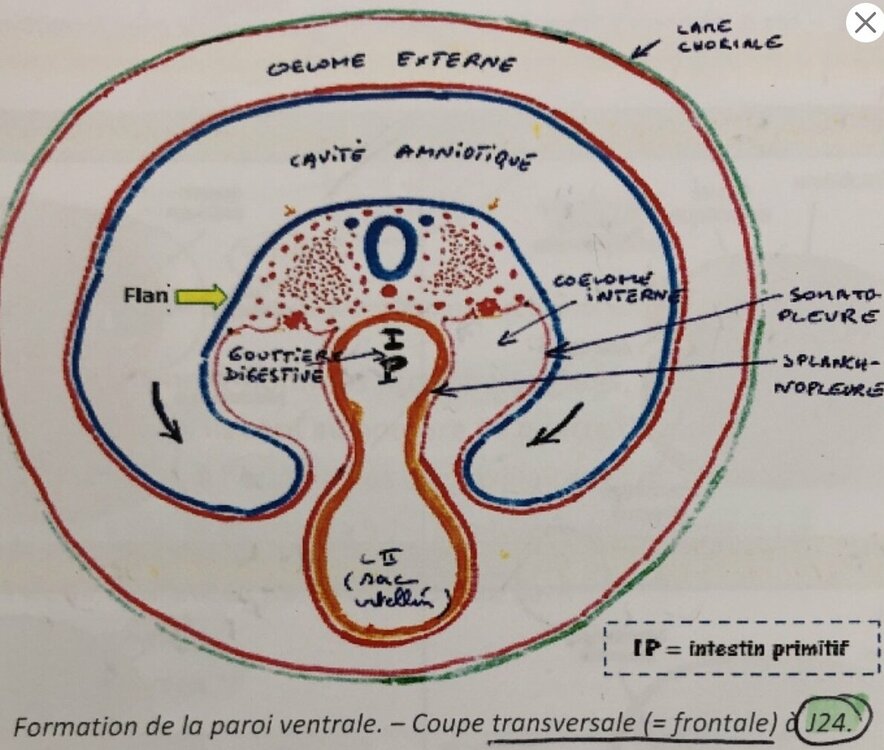 LAME
CHORIALE
COELOME EXTERNE
CAVITÉ AMNIOTIQUE
Flan
COELOME
INTERNE
SOMATO-
PLEURE
I
P
GOUTTIÈRE
DIGESTIVE
SPLANCH-
NOPLEURE
L II
(sac
vitellin)
IP = intestin primitif
Formation de la paroi ventrale. – Coupe transversale (= frontale) à J24.